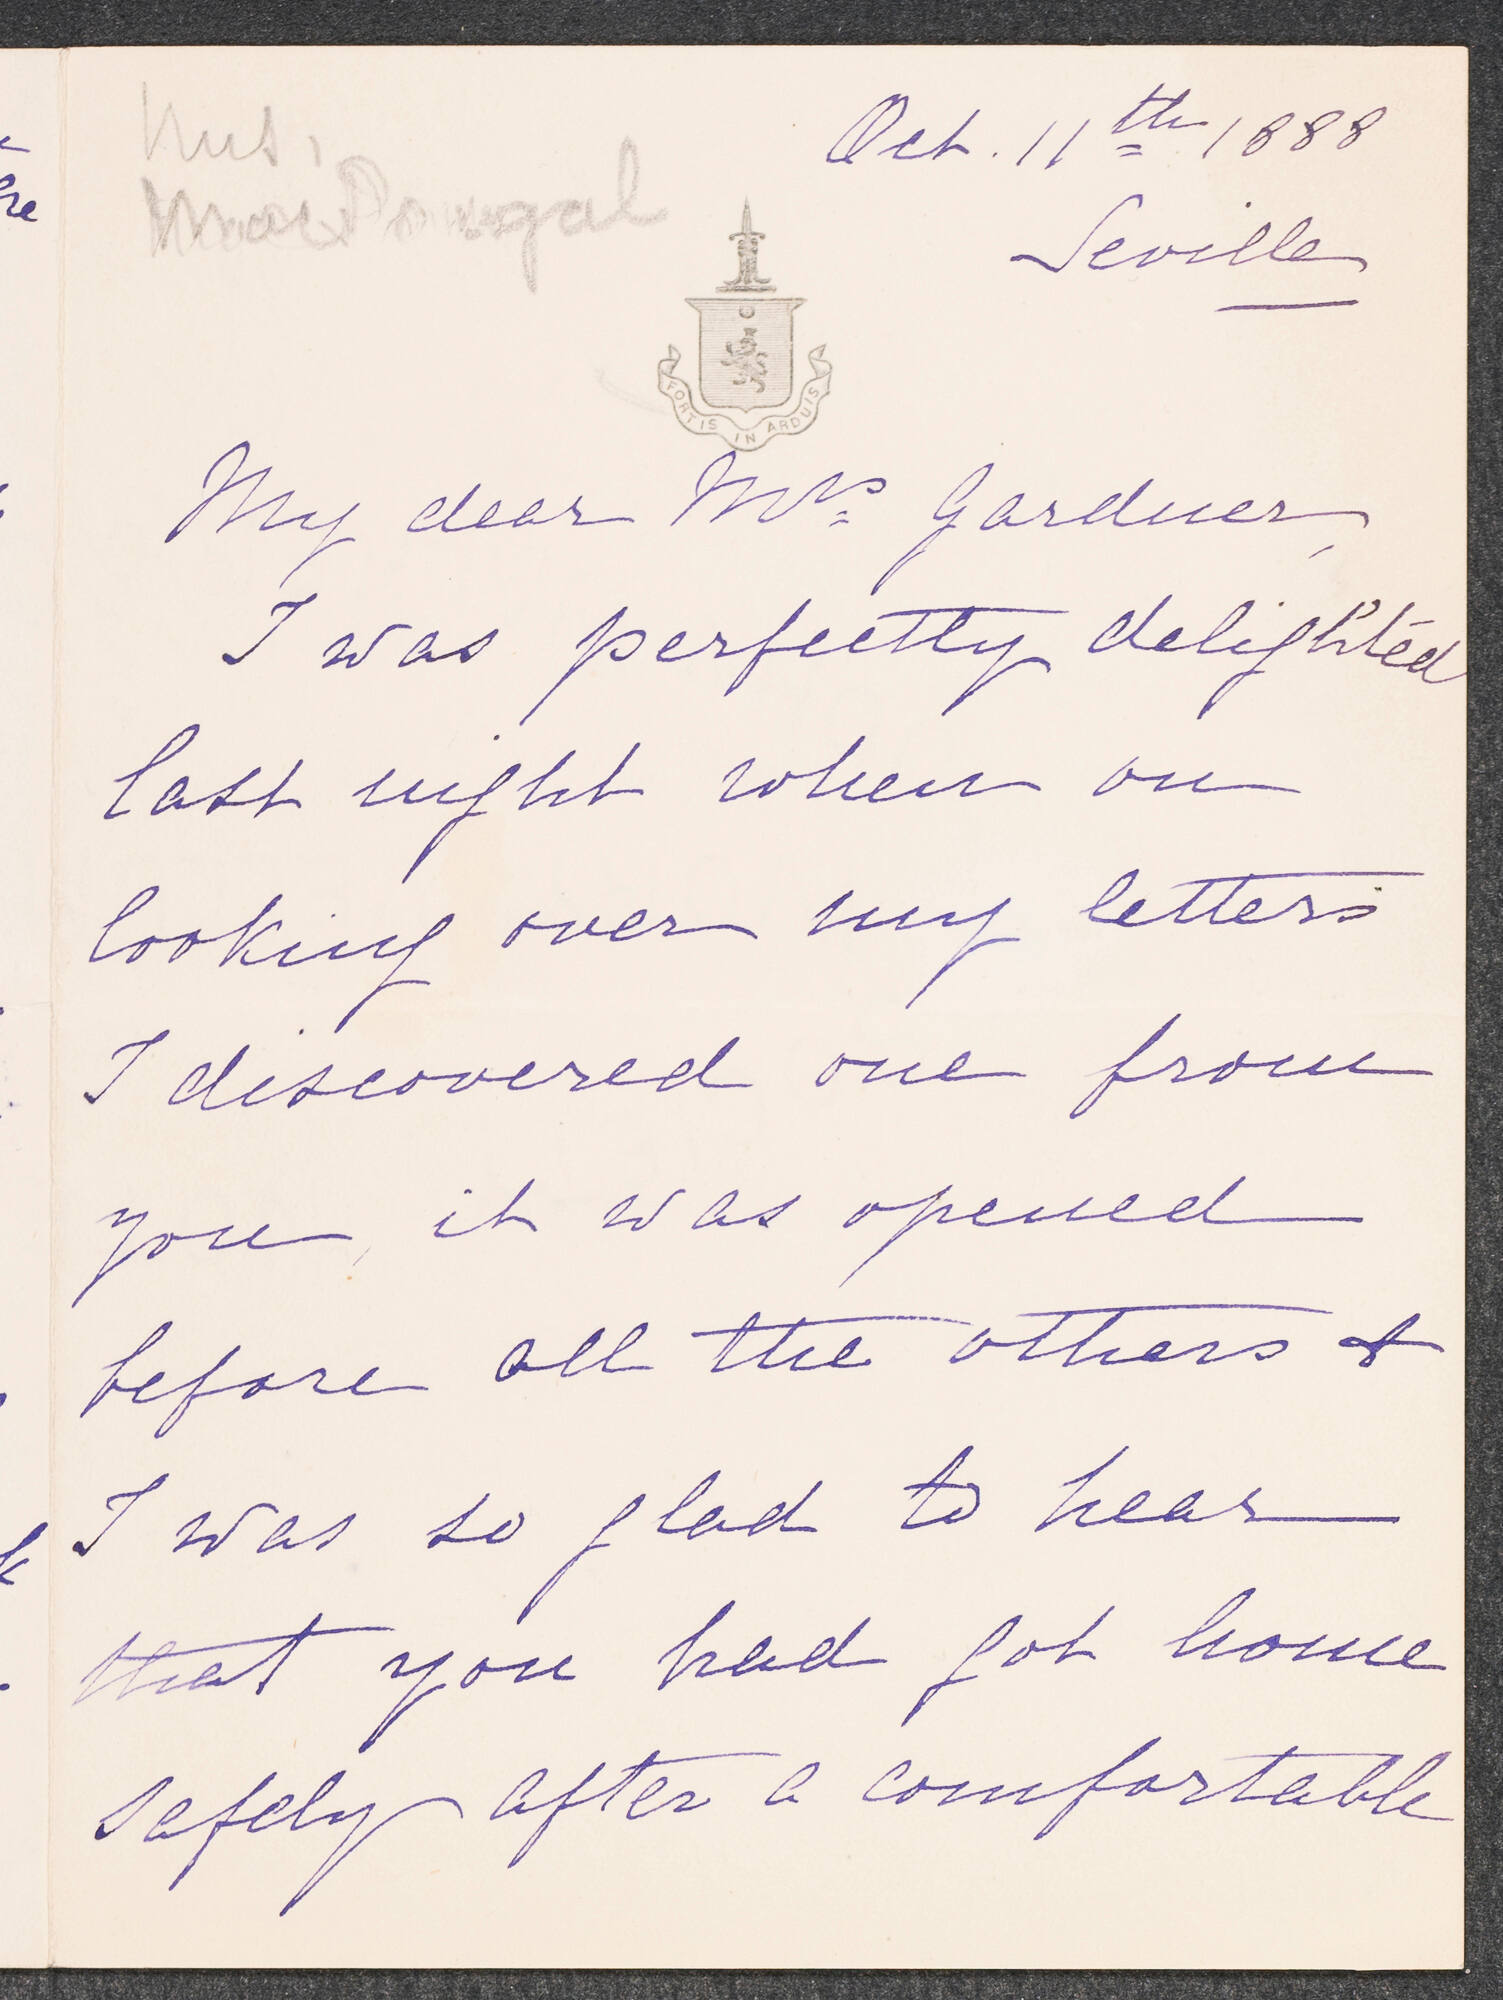 Mrs.
MacDougal
Oct. 11th 1888
Seville
FORTIS IN ARDUIS
My dear Mrs Gardner,
I was perfectly delighted
last night when on
looking over my letters
I discovered one from
you, it was opened
before all the others &
I was so glad to hear
that you had got home
safely after a comfortable